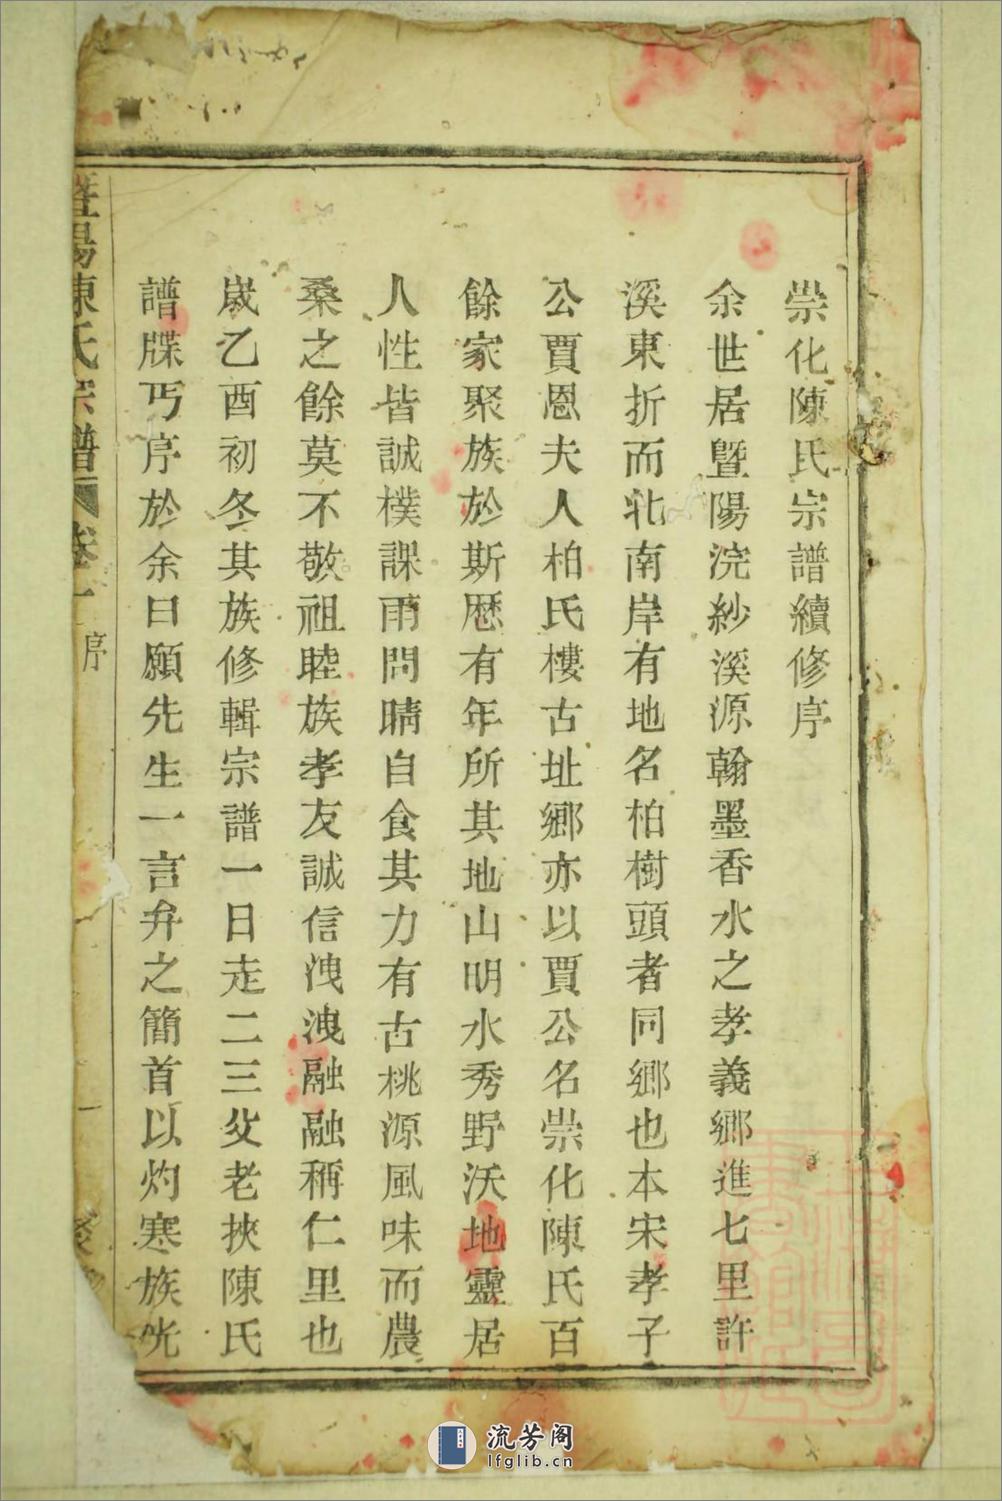 崇化陳氏宗譜續修序
余世居暨陽浣紗溪源翰墨香水之孝義鄉進七里許
溪東折而北南岸有地名柏樹頭者同鄉也本宋孝子
公賈恩夫人柏氏樓古址鄉亦以賈公名崇化陳氏百
餘家聚族於斯歷有年所其地山明水秀野沃地靈居
人性皆誠樸課雨問晴自食其力有古桃源風味而農
桑之餘莫不敬祖睦族孝友誠信洩洩融融稱仁里也
歲乙酉初冬其族修輯宗譜一日走二三父老挾陳氏
譜牒丐序於余曰願先生一言弁之簡首以灼寒族光
暨陽陳氏宗譜 卷一 序
一
流芳阁
lfglib.cn